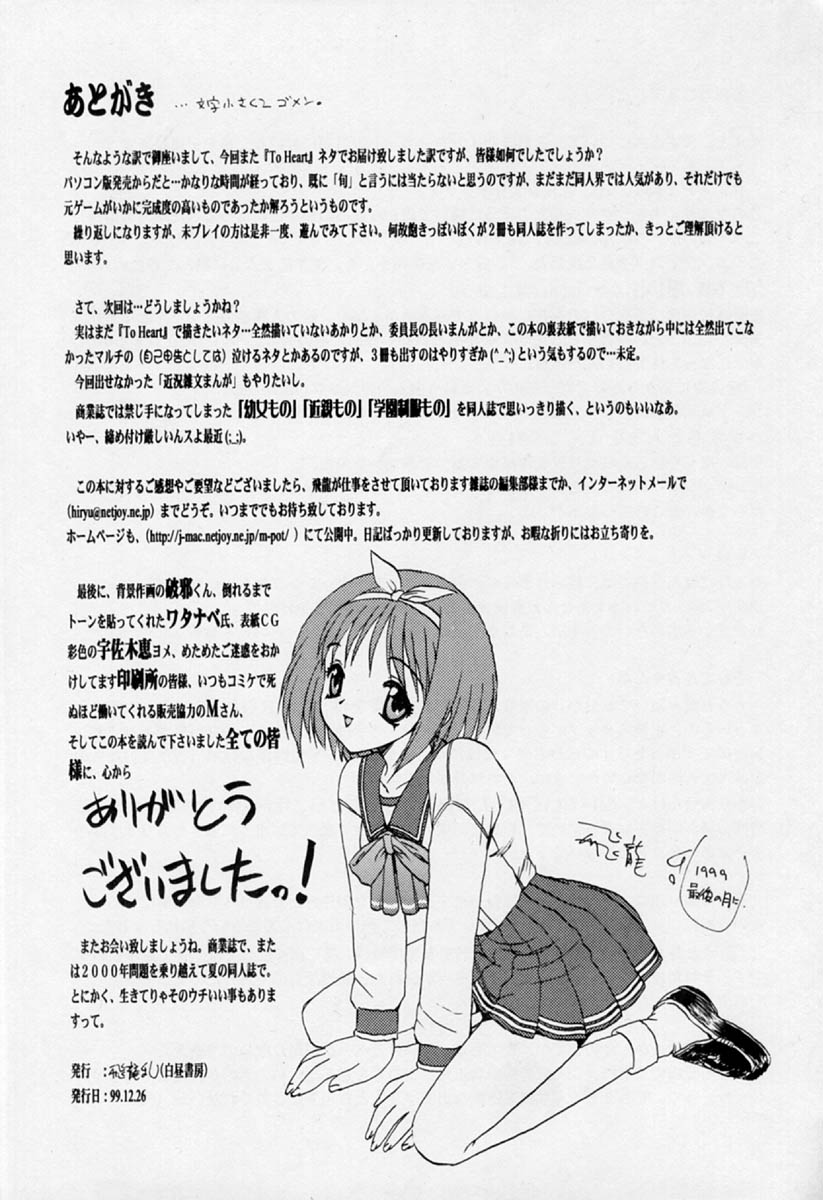 あとがき …文字小さくてゴメン。
そんなような訳で御座いまして、今回また『To Heart』ネタでお届け致しました訳ですが、皆様如何でしたでしょうか？
パソコン版発売からだと…かなりな時間が経っており、既に「旬」と言うには当たらないと思うのですが、まだまだ同人界では人気があり、それだけでも
元ゲームがいかに完成度の高いものであったか解ろうというものです。
繰り返しになりますが、未プレイの方は是非一度、遊んでみて下さい。何故飽きっぽいぼくが２冊も同人誌を作ってしまったか、きっとご理解頂けると
思います。
さて、次回は…どうしましょうかね？
実はまだ『To Heart』で描きたいネタ…全然描いていないあかりとか、委員長の長いまんがとか、この本の裏表紙で描いておきながら中には全然出てこな
かったマルチの（自己申告としては）泣けるネタとかあるのですが、３冊も出すのはやりすぎか(^_^;)という気もするので…未定。
今回出せなかった「近況雑文まんが」もやりたいし。
商業誌では禁じ手になってしまった「幼女もの」「近親もの」「学園制服もの」を同人誌で思いっきり描く、というのもいいなあ。
いやー、締め付け厳しいんスよ最近(;_;)。
この本に対するご感想やご要望などございましたら、飛龍が仕事をさせて頂いております雑誌の編集部様までか、インターネットメールで
(hiryu@netjoy.ne.jp）までどうぞ。いつまででもお待ち致しております。
ホームページも、(http://j-mac.netjoy.ne.jp/m-pot/ ）にて公開中。日記ばっかり更新しておりますが、お暇な折りにはお立ち寄りを。
最後に、背景作画の破邪くん、倒れるまで
トーンを貼ってくれたワタナベ氏、表紙ＣＧ
彩色の宇佐木恵ヨメ、めためたご迷惑をおか
けしてます印刷所の皆様、いつもコミケで死
ぬほど働いてくれる販売協力のＭさん、
そしてこの本を読んで下さいました全ての皆
様に、心から
ありがとう
ございましたっ！
飛龍
1999
最後の月に
またお会い致しましょうね。商業誌で、また
は２０００年問題を乗り越えて夏の同人誌で。
とにかく、生きてりゃそのウチいい事もありま
すって。
発行　：飛龍乱(白昼書房)
発行日：99.12.26